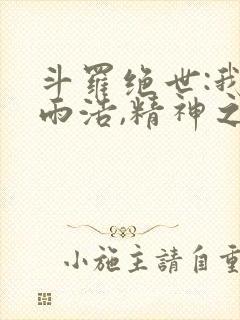 斗羅绝世:我
雨浩,精神之
小施主請自重